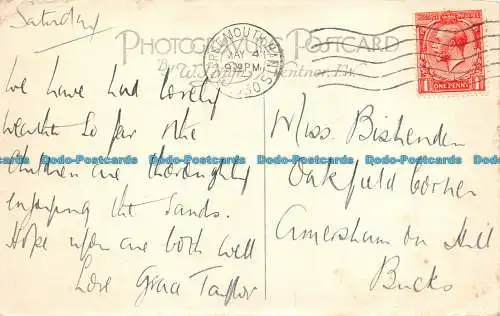 Saturday
PHOTOGRAVURE POSTCARD
By W. Ventnor, I.W.
MAY 4
9 PM
1930
POSTAGE REVENUE
ONE PENNY
We have had lovely
weather so far the
children are thoroughly
enjoying the sands.
Hope you are both well
Love Grace Taylor
Miss Bishenden
Oakfield Corner
Amersham on Hill
Bucks
Dodo-Postcards Dodo-Postcards Dodo-Postcards Dodo-Postcards
Dodo-Postcards Dodo-Postcards Dodo-Postcards Dodo-Postcards